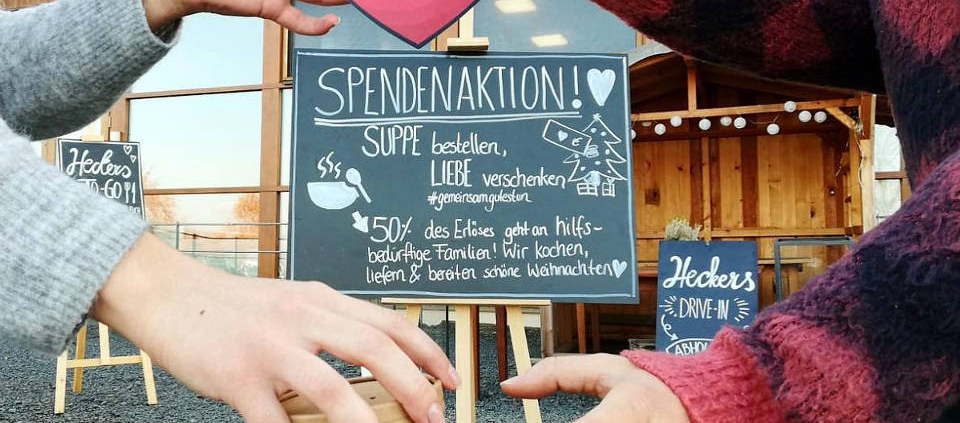 SPENDENAKTION!
SUPPE bestellen,
LIEBE verschenken
#gemeinsamgutestun
50% des Erlöses geht an hilfs-
bedürftige Familien! Wir kochen,
liefern & bereiten schöne Weihnachten
Heckers
TO-GO
Heckers
DRIVE-IN